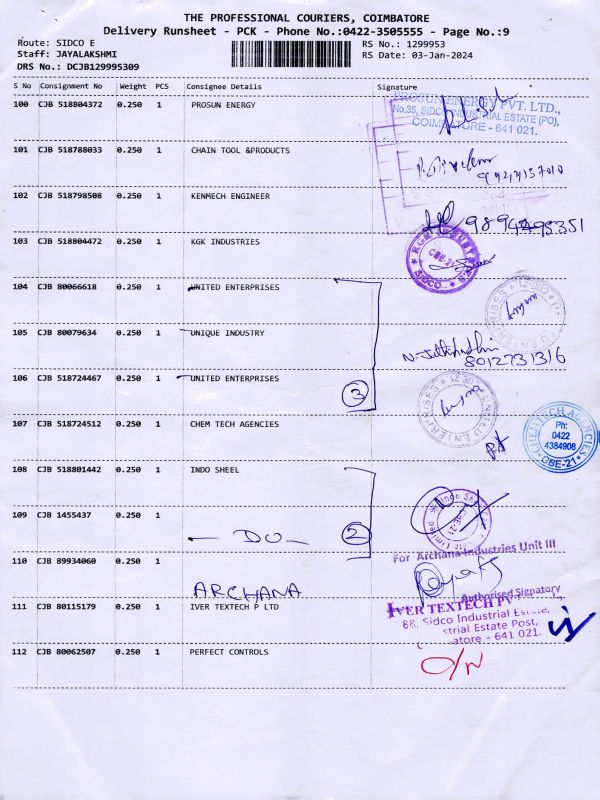 THE PROFESSIONAL COURIERS, COIMBATORE
Delivery Runsheet - PCK - Phone No.:0422-3505555 - Page No.:9
Route: SIDCO E
RS No.: 1299953
Staff: JAYALAKSHMI
RS Date: 03-Jan-2024
DRS No.: DCJB129995309
S No Consignment No Weight PCS Consignee Details Signature
100 CJB 518804372 0.250 1 PROSUN ENERGY
PROSUN ENERGY PVT. LTD.,
No.35, SIDCO INDUSTRIAL ESTATE (PO),
COIMBATORE - 641 021.
101 CJB 518788033 0.250 1 CHAIN TOOL &PRODUCTS
102 CJB 518798508 0.250 1 KENMECH ENGINEER
9894495351
103 CJB 518804472 0.250 1 KGK INDUSTRIES
KGK INDUSTRIES
CBE-21
SIDCO
104 CJB 80066618 0.250 1 UNITED ENTERPRISES
105 CJB 80079634 0.250 1 UNIQUE INDUSTRY
8012731316
106 CJB 518724467 0.250 1 UNITED ENTERPRISES
3
UNITED ENTERPRISES
107 CJB 518724512 0.250 1 CHEM TECH AGENCIES
CHEMTECH AGENCIES
Ph:
0422
4384908
CBE-21
108 CJB 518801442 0.250 1 INDO SHEEL
109 CJB 1455437 0.250 1
- DO -
2
CBE-21
110 CJB 89934060 0.250 1
ARCHANA
For Archana Industries Unit III
Authorised Signatory
111 CJB 80115179 0.250 1 IVER TEXTECH P LTD
IVER TEXTECH
88, Sidco Industrial Estate,
strial Estate Post,
atore - 641 021.
112 CJB 80062507 0.250 1 PERFECT CONTROLS
O/N